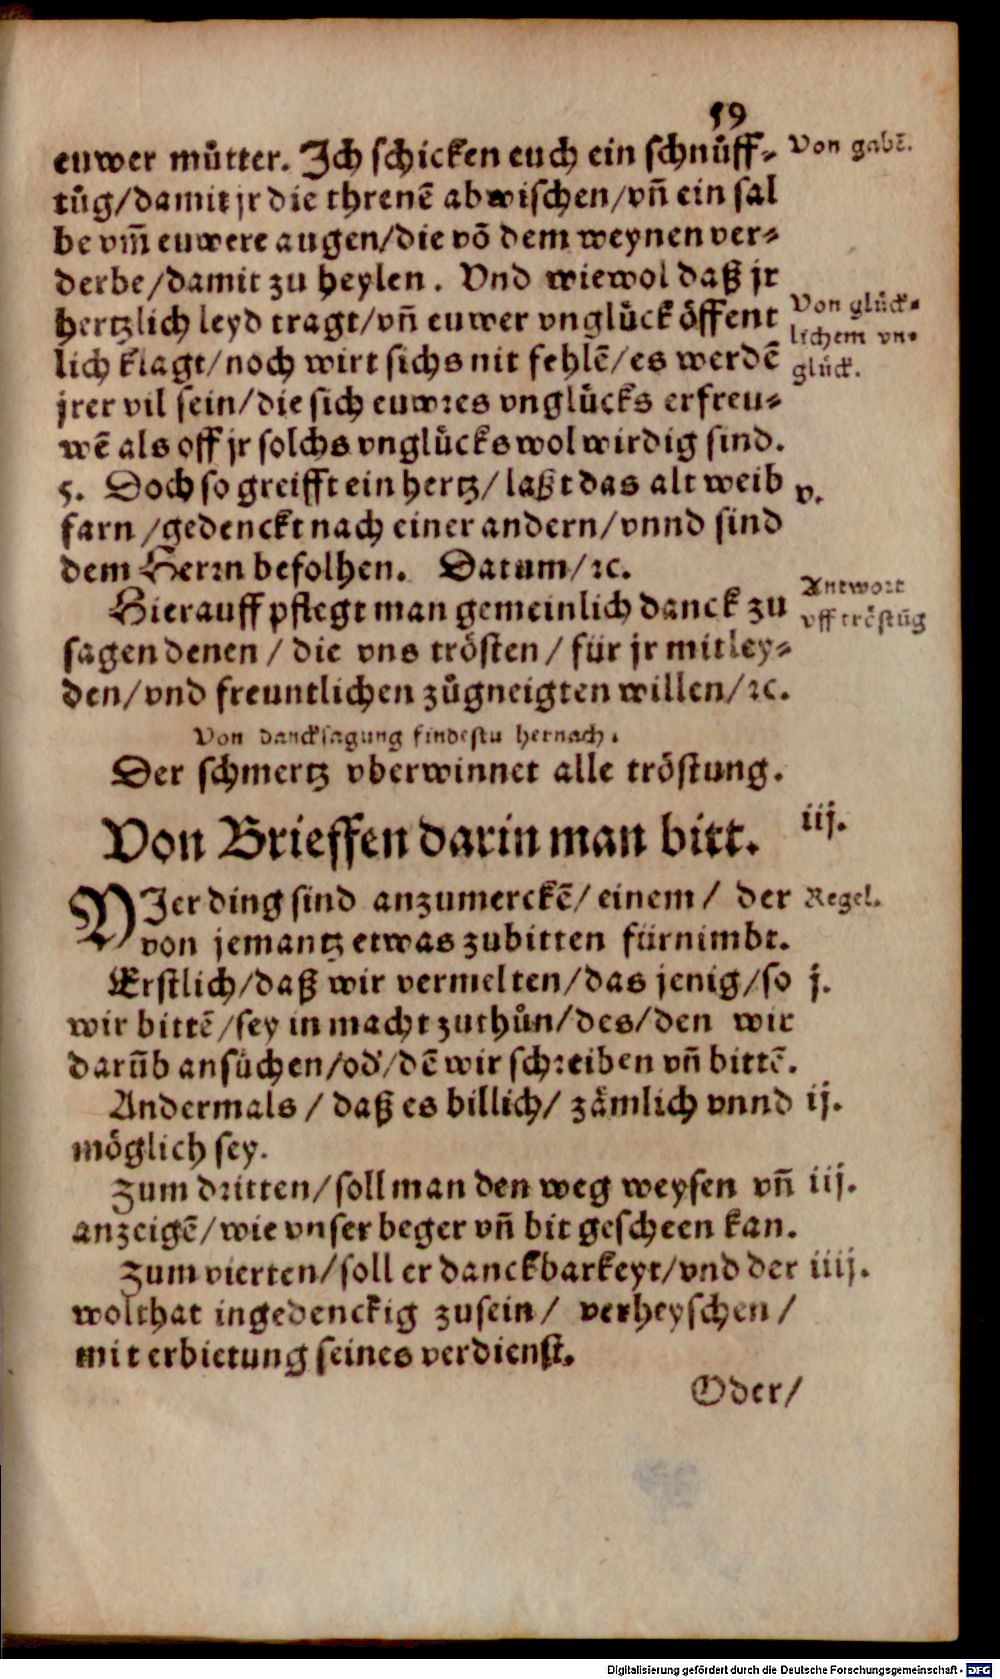 59
euwer můtter. Jch schicken euch ein schnůff- Von gabẽ.
tůg/damit jr die threnẽ abwischen/vñ ein sal
be vm̃ euwere augen/die võ dem weynen ver-
derbe/damit zu heylen. Vnd wiewol daß jr
hertzlich leyd tragt/vñ euwer vnglůck öffent Von glůck-
lich klagt/noch wirt sichs nit fehlẽ/es werdẽ lichem vn-
jrer vil sein/die sich euwres vnglůcks erfreu- glůck.
wẽ als off jr solchs vnglůcks wol wirdig sind.
5. Doch so greifft ein hertz/laßt das alt weib v.
farn/gedenckt nach einer andern/vnnd sind
dem Herrn befolhen. Datum/ꝛc.
Hierauff pflegt man gemeinlich danck zu Antwort
sagen denen/die vns trösten/für jr mitley- vff tröstũg
den/vnd freuntlichen zůgneigten willen/ꝛc.
Von dancksagung findestu hernach.
Der schmertz vberwinnet alle tröstung.
Von Brieffen darin man bitt. iij.
VJer ding sind anzumerckẽ/einem/der Regel.
von jemantz etwas zubitten fürnimbt.
Erstlich/daß wir vermelten/das jenig/so j.
wir bittẽ/sey in macht zuthůn/des/den wir
darũb ansůchen/od'/dẽ wir schreiben vñ bittẽ.
Andermals/daß es billich/zämlich vnnd ij.
möglich sey.
Zum dritten/soll man den weg weysen vñ iij.
anzeigẽ/wie vnser beger vñ bit gescheen kan.
Zum vierten/soll er danckbarkeyt/vnd der iiij.
wolthat ingedenckig zusein/verheyschen/
mit erbietung seines verdienst.
Oder/
Digitalisierung gefördert durch die Deutsche Forschungsgemeinschaft - DFG